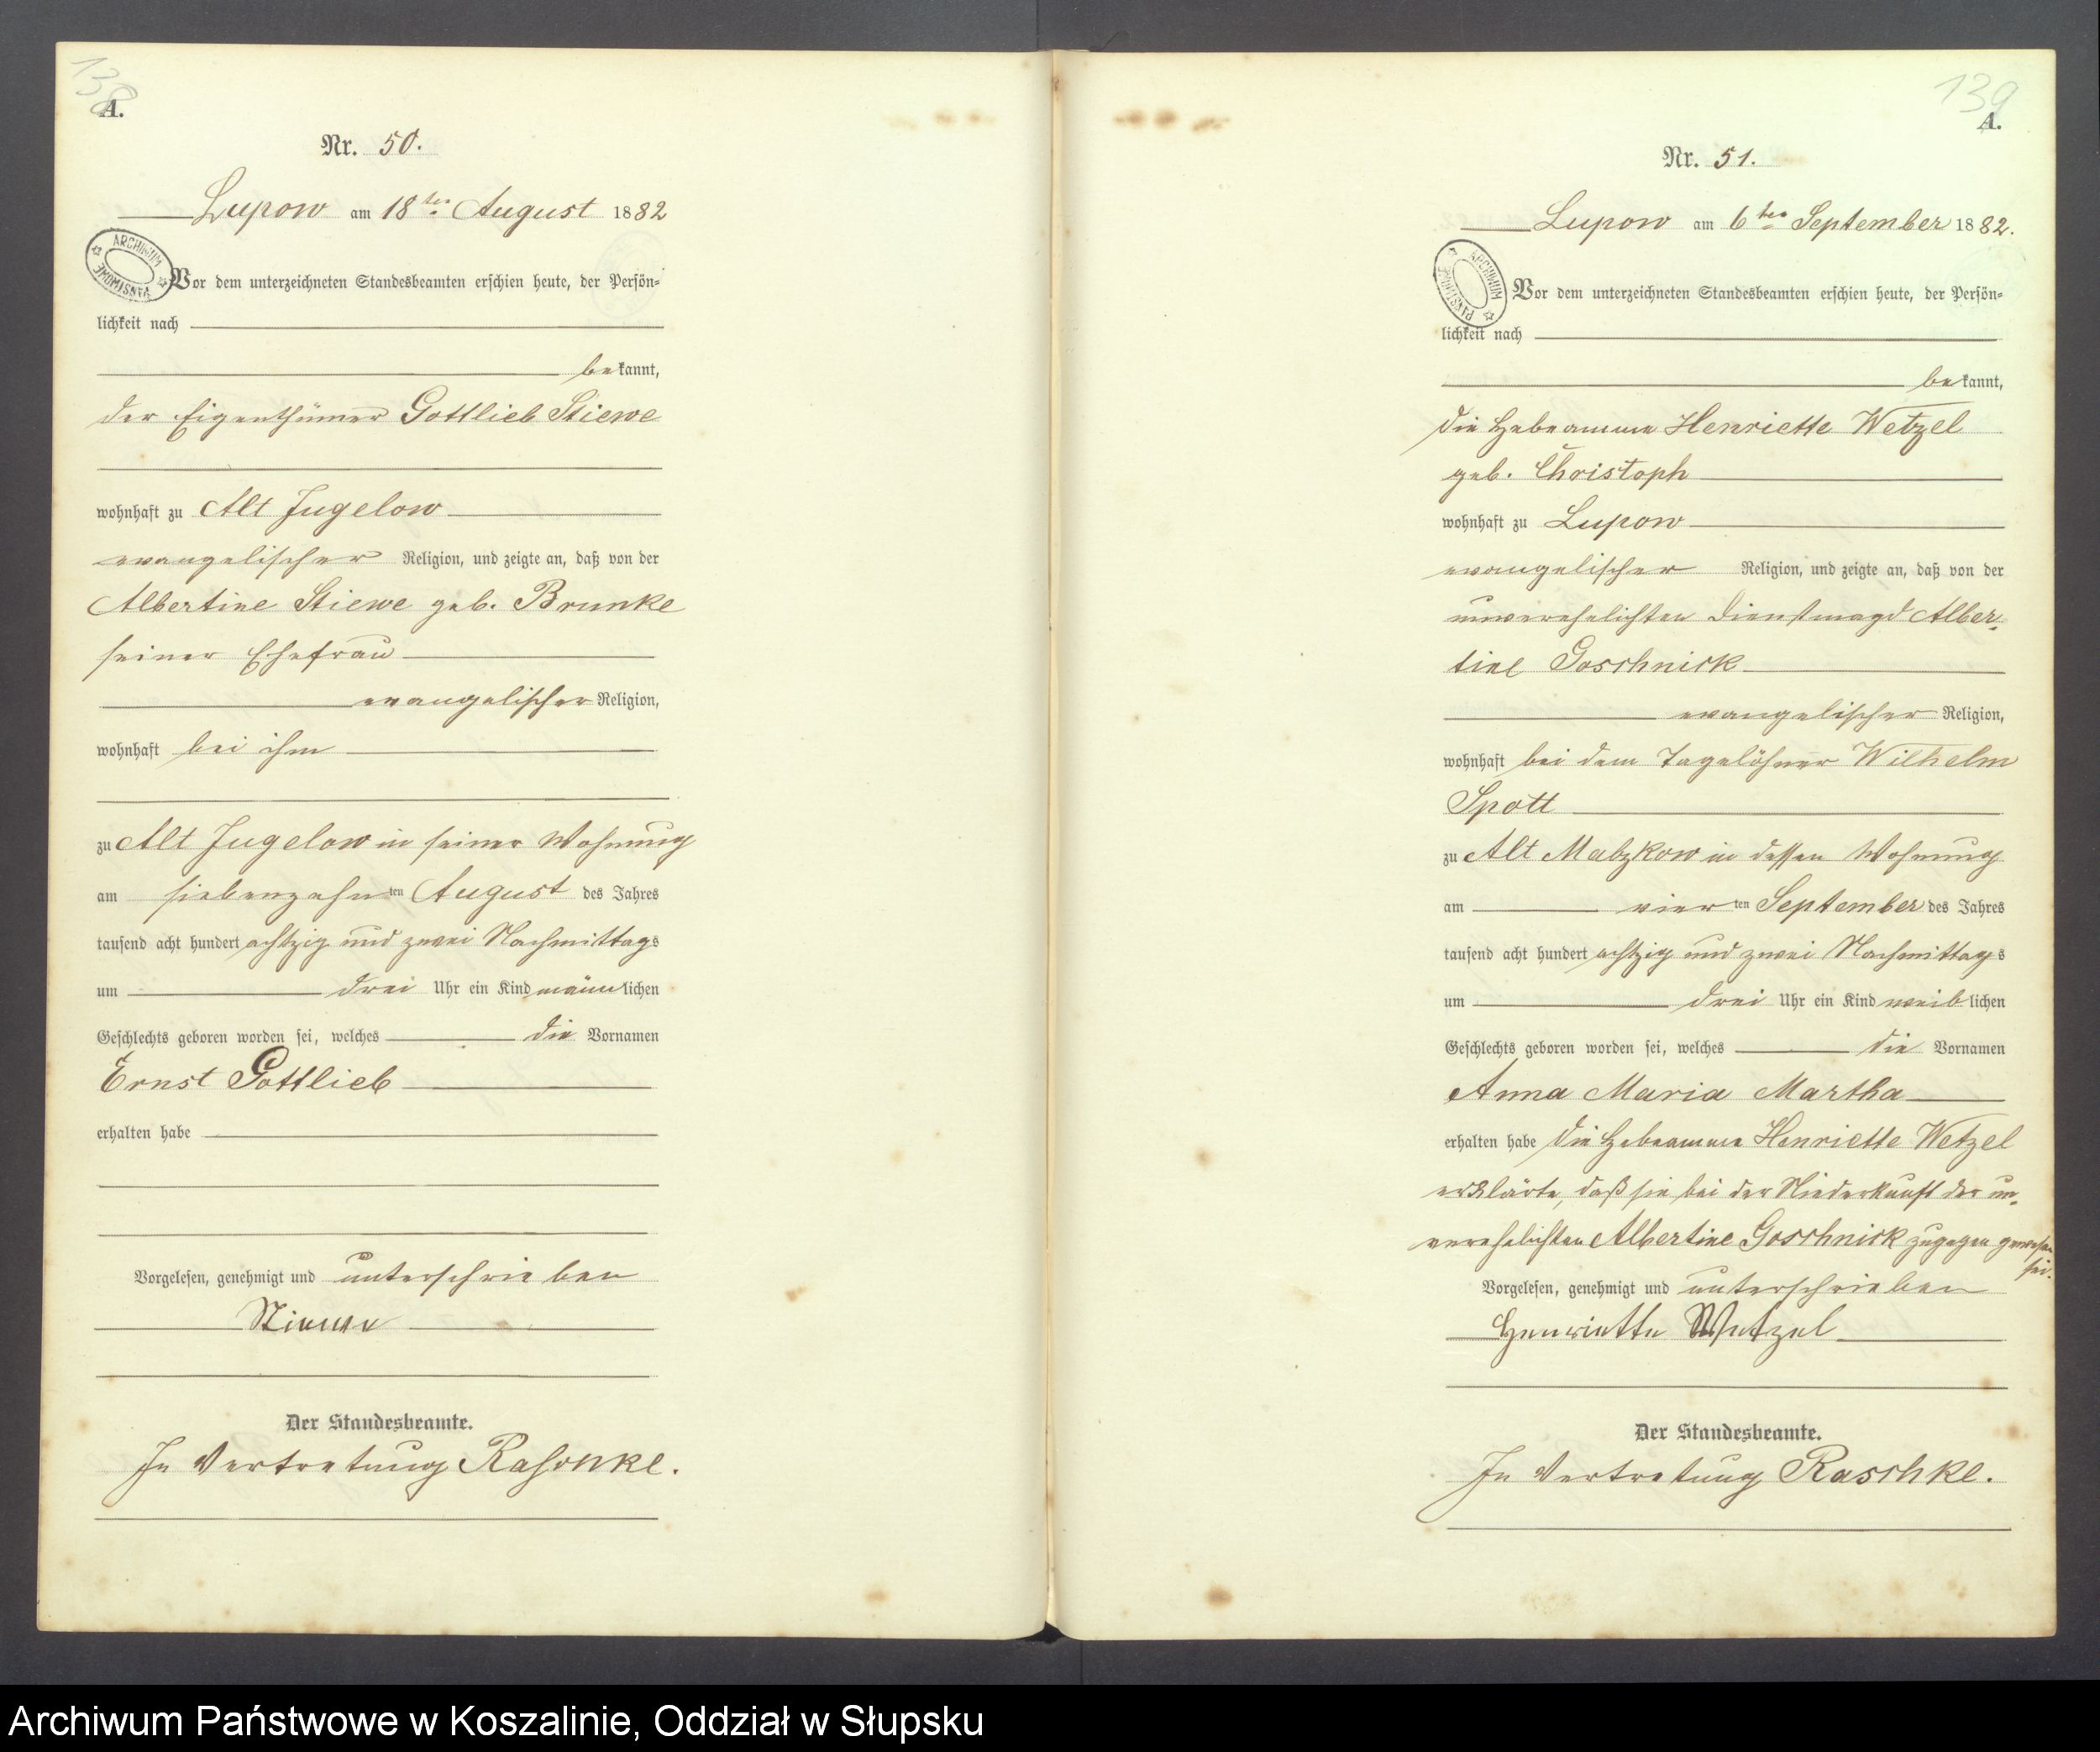 138
A.
Nr. 50.
Lupow am 18ten August 1882
ARCHIWUM PAŃSTWOWE
Vor dem unterzeichneten Standesbeamten erschien heute, der Persön-
lichkeit nach
bekannt,
der Eigenthümer Gottlieb Stiewe
wohnhaft zu Alt Jugelow
evangelischer Religion, und zeigte an, daß von der
Albertine Stiewe geb. Brunke
seiner Ehefrau
evangelischer Religion,
wohnhaft bei ihm
zu Alt Jugelow in seiner Wohnung
am siebenzehnten August des Jahres
tausend acht hundert achtzig und zwei Nachmittags
um drei Uhr ein Kind männlichen
Geschlechts geboren worden sei, welches die Vornamen
Ernst Gottlieb
erhalten habe
Vorgelesen, genehmigt und unterschrieben
Stiewe
Der Standesbeamte.
In Vertretung Raschke.
139
A.
Nr. 51.
Lupow am 6ten September 1882.
ARCHIWUM PAŃSTWOWE
Vor dem unterzeichneten Standesbeamten erschien heute, der Persön-
lichkeit nach
bekannt,
die Hebeamme Henriette Wetzel
geb. Christoph
wohnhaft zu Lupow
evangelischer Religion, und zeigte an, daß von der
unverehelichten Dienstmagd Alber-
tine Goschnick
evangelischer Religion,
wohnhaft bei dem Tagelöhner Wilhelm
Spott
zu Alt Matzkow in dessen Wohnung
am vierten September des Jahres
tausend acht hundert achtzig und zwei Nachmittags
um drei Uhr ein Kind weiblichen
Geschlechts geboren worden sei, welches die Vornamen
Anna Maria Martha
erhalten habe die Hebeamme Henriette Wetzel
erklärte, daß sie bei der Niederkunft der un-
verehelichten Albertine Goschnick zugegen gewesen
sei.
Vorgelesen, genehmigt und unterschrieben
Henriette Wetzel
Der Standesbeamte.
In Vertretung Raschke.
Archiwum Państwowe w Koszalinie, Oddział w Słupsku